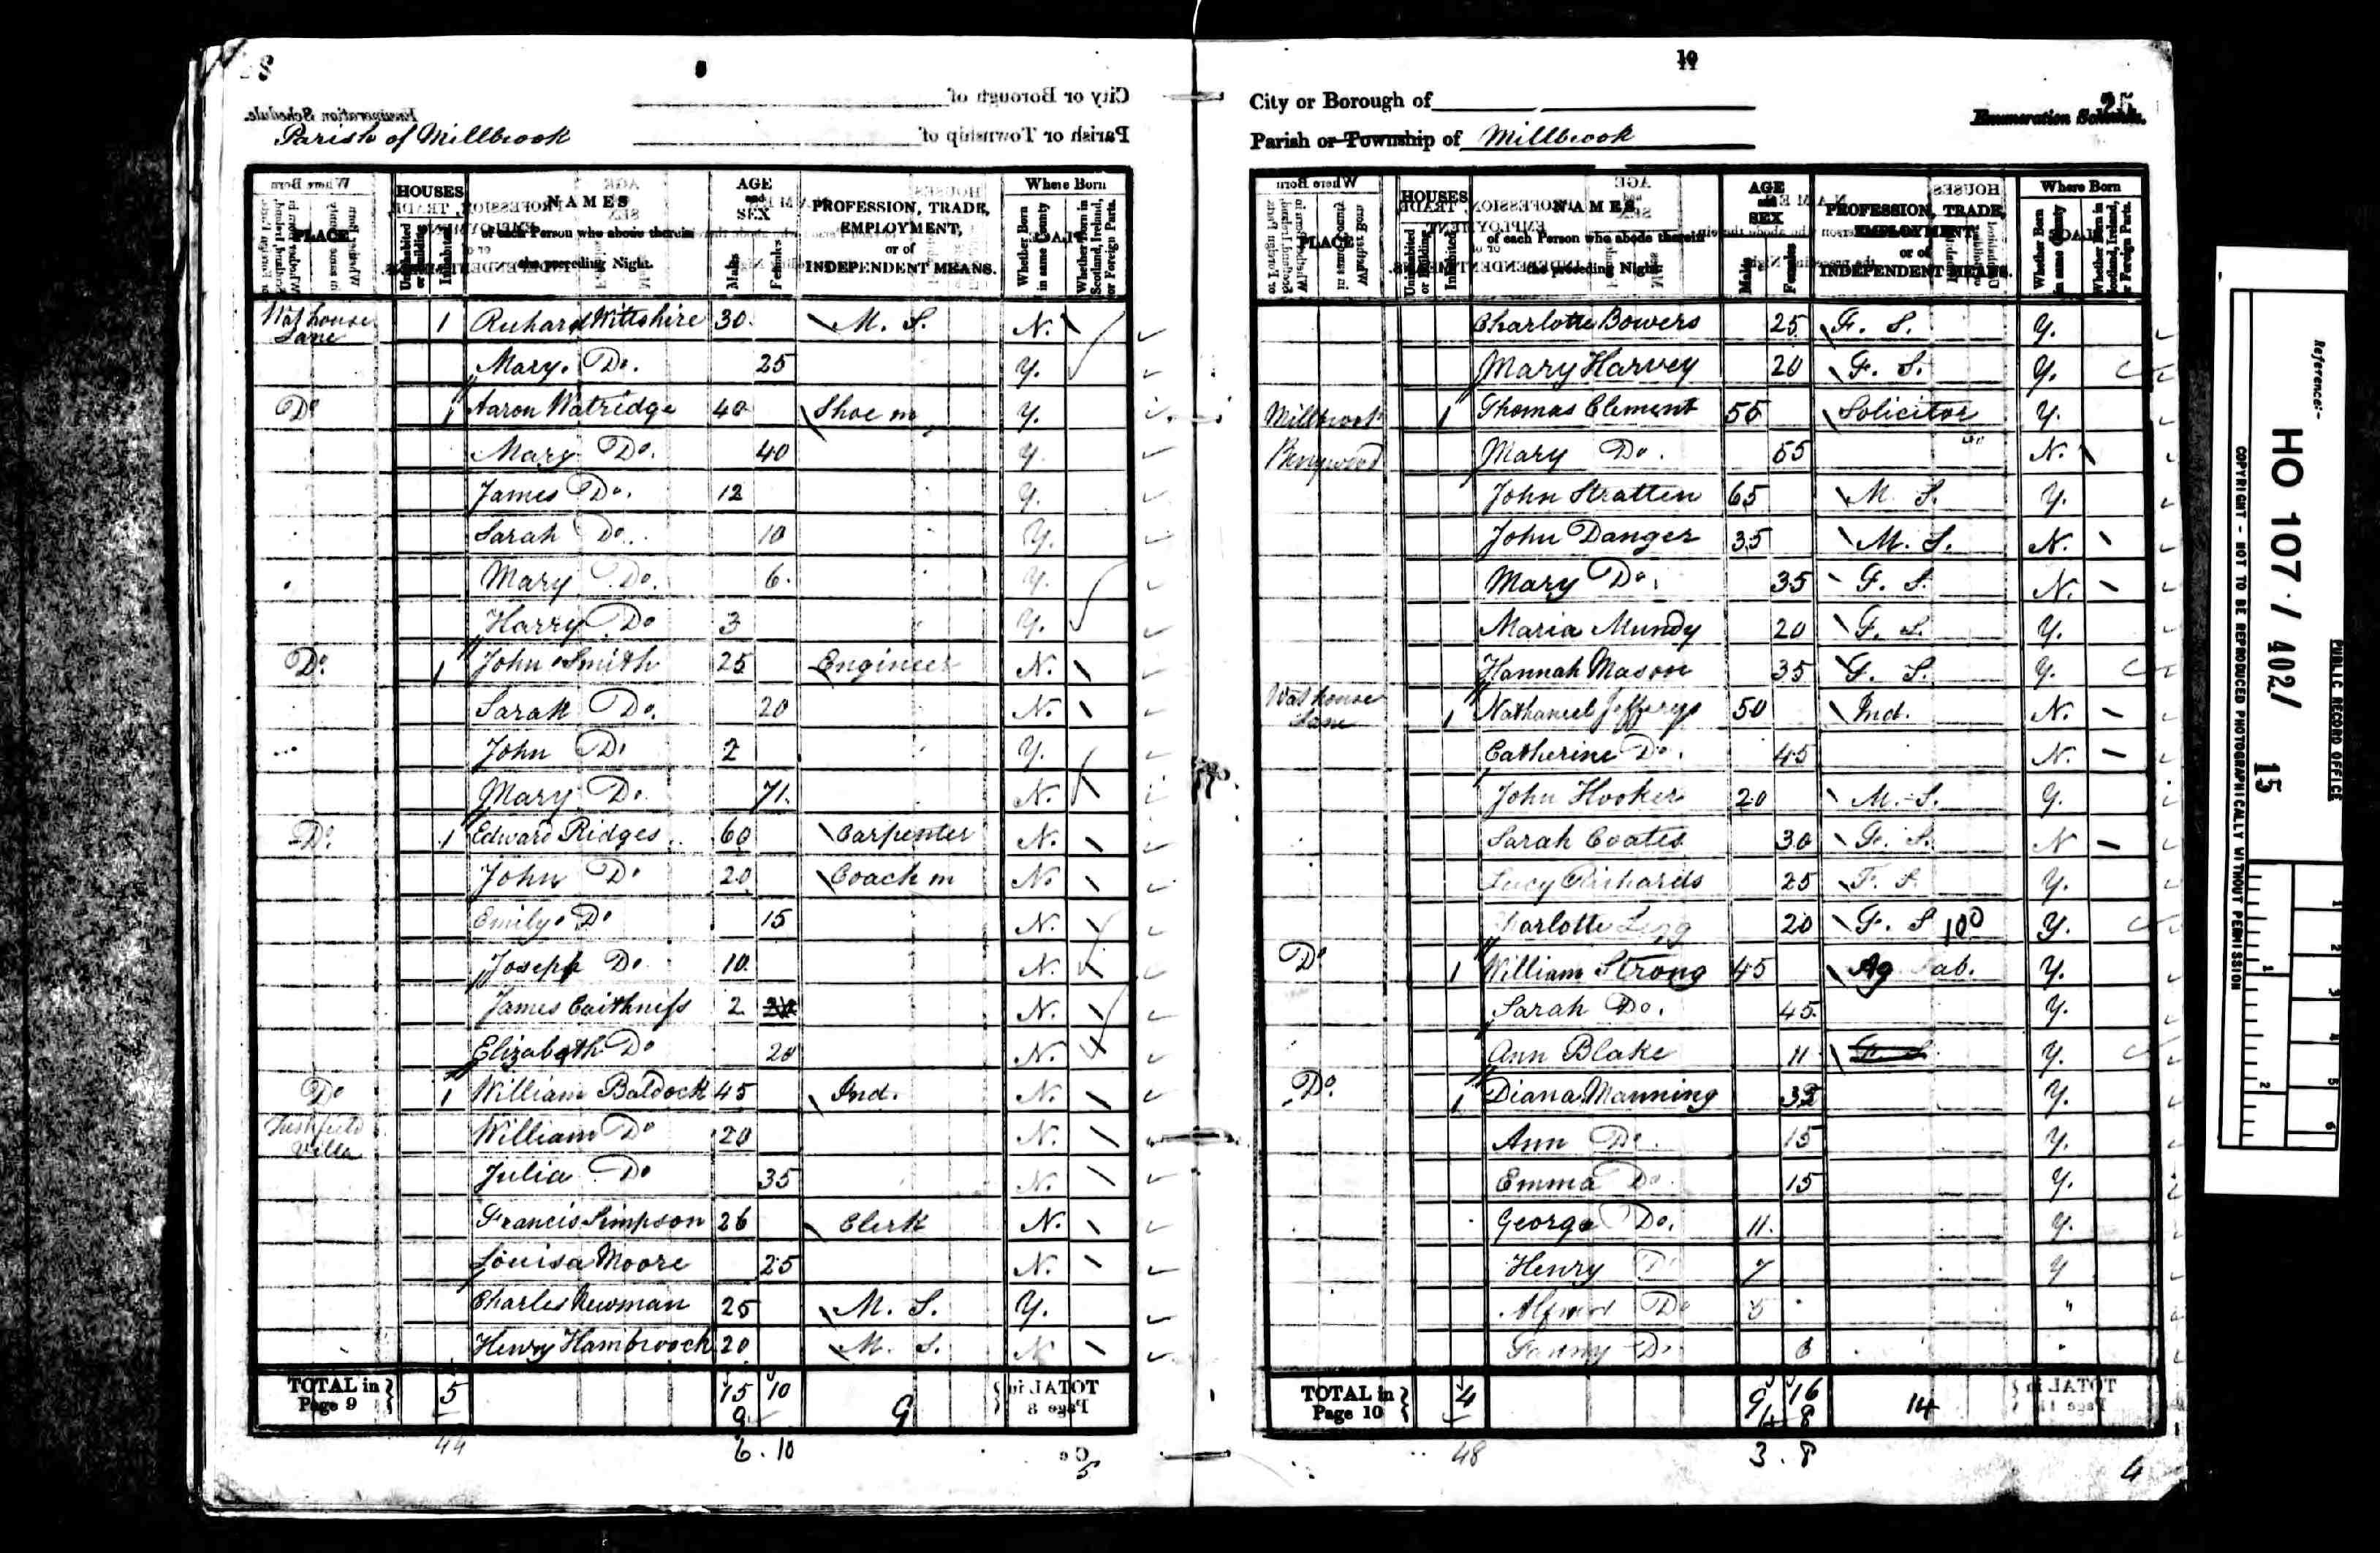 Parish of Millbrook
City or Borough of
Parish or Township of
PLACE
HOUSES
Uninhabited or Building
Inhabited
NAMES
of each Person who abode therein the preceding Night.
AGE and SEX
Males
Females
PROFESSION, TRADE, EMPLOYMENT, or of INDEPENDENT MEANS.
Where Born
Whether Born in same County
Whether Born in Scotland, Ireland, or Foreign Parts.
Lane 1 Richard Wiltshire 30 M. S. N.
Mary Do. 25 Y.
Do 1 Aaron Watridge 40 Shoe m Y.
Mary Do. 40 Y
James Do. 12 Y.
Sarah Do. 10 Y.
Mary Do. 6. Y.
Harry Do 3 Y.
Do. 1 John Smith 25 Engineer N.
Sarah Do. 20 N.
John Do 2 Y.
Mary Do. 71. N.
Do. 1 Edward Ridges 60 Carpenter N.
John Do 20 Coach m N
Emily Do 15 N.
Joseph Do 10. N.
James Caithness 2 N.
Elizabeth Do 20 N.
Do 1 William Baldock 45 Ind. N.
Villa William Do 20 N.
Julia Do 35 N.
Francis Simpson 26 Clerk N.
Louisa Moore 25 N.
Charles Newman 25 M. S. Y.
Henry Hambrook 20 M. S. N
TOTAL in Page 9 5 15 10 9
9
44 6 . 10
5
10
City or Borough of
25
Enumeration Schedule.
Parish or Township of Millbrook
PLACE
HOUSES
Uninhabited or Building
Inhabited
NAMES
of each Person who abode therein the preceding Night.
AGE and SEX
Males
Females
PROFESSION, TRADE, EMPLOYMENT, or of INDEPENDENT MEANS.
Where Born
Whether Born in same County
Whether Born in Scotland, Ireland, or Foreign Parts.
Charlotte Bowers 25 F. S. Y.
Mary Harvey 20 F. S. Y.
Millbrook 1 Thomas Clement 55 Solicitor Y.
Mary Do. 55 N.
John Stratten 65 M. S. Y.
John Danger 35 M. S. N.
Mary Do. 35 F. S. N.
Maria Mundy 20 F. S. Y.
Hannah Mason 35 F. S. Y.
Lane 1 Nathaniel Jefferys 50 Ind. N.
Catherine Do. 45 N.
John Hooker 20 M. S. Y.
Sarah Coates 30 F. S. N
Lucy Richards 25 F. S. Y.
20 F. S 100 Y.
Do 1 William Strong 45 Ag ab. Y.
Sarah Do. 45. Y.
Ann Blake 11 F. S. Y.
Do. 1 Diana Manning Y.
Ann Do. 15 Y.
Emma Do. 15 Y.
George Do. 11. Y.
Henry Do 7 Y
Alfred Do 5 "
Fanny Do "
TOTAL in Page 10 4 9 16 14
4 8
48 3 . 8
4
Reference:-
HO 107 / 402/
15
PUBLIC RECORD OFFICE
COPYRIGHT - NOT TO BE REPRODUCED PHOTOGRAPHICALLY WITHOUT PERMISSION
1 2 3 4 5 6
1 2